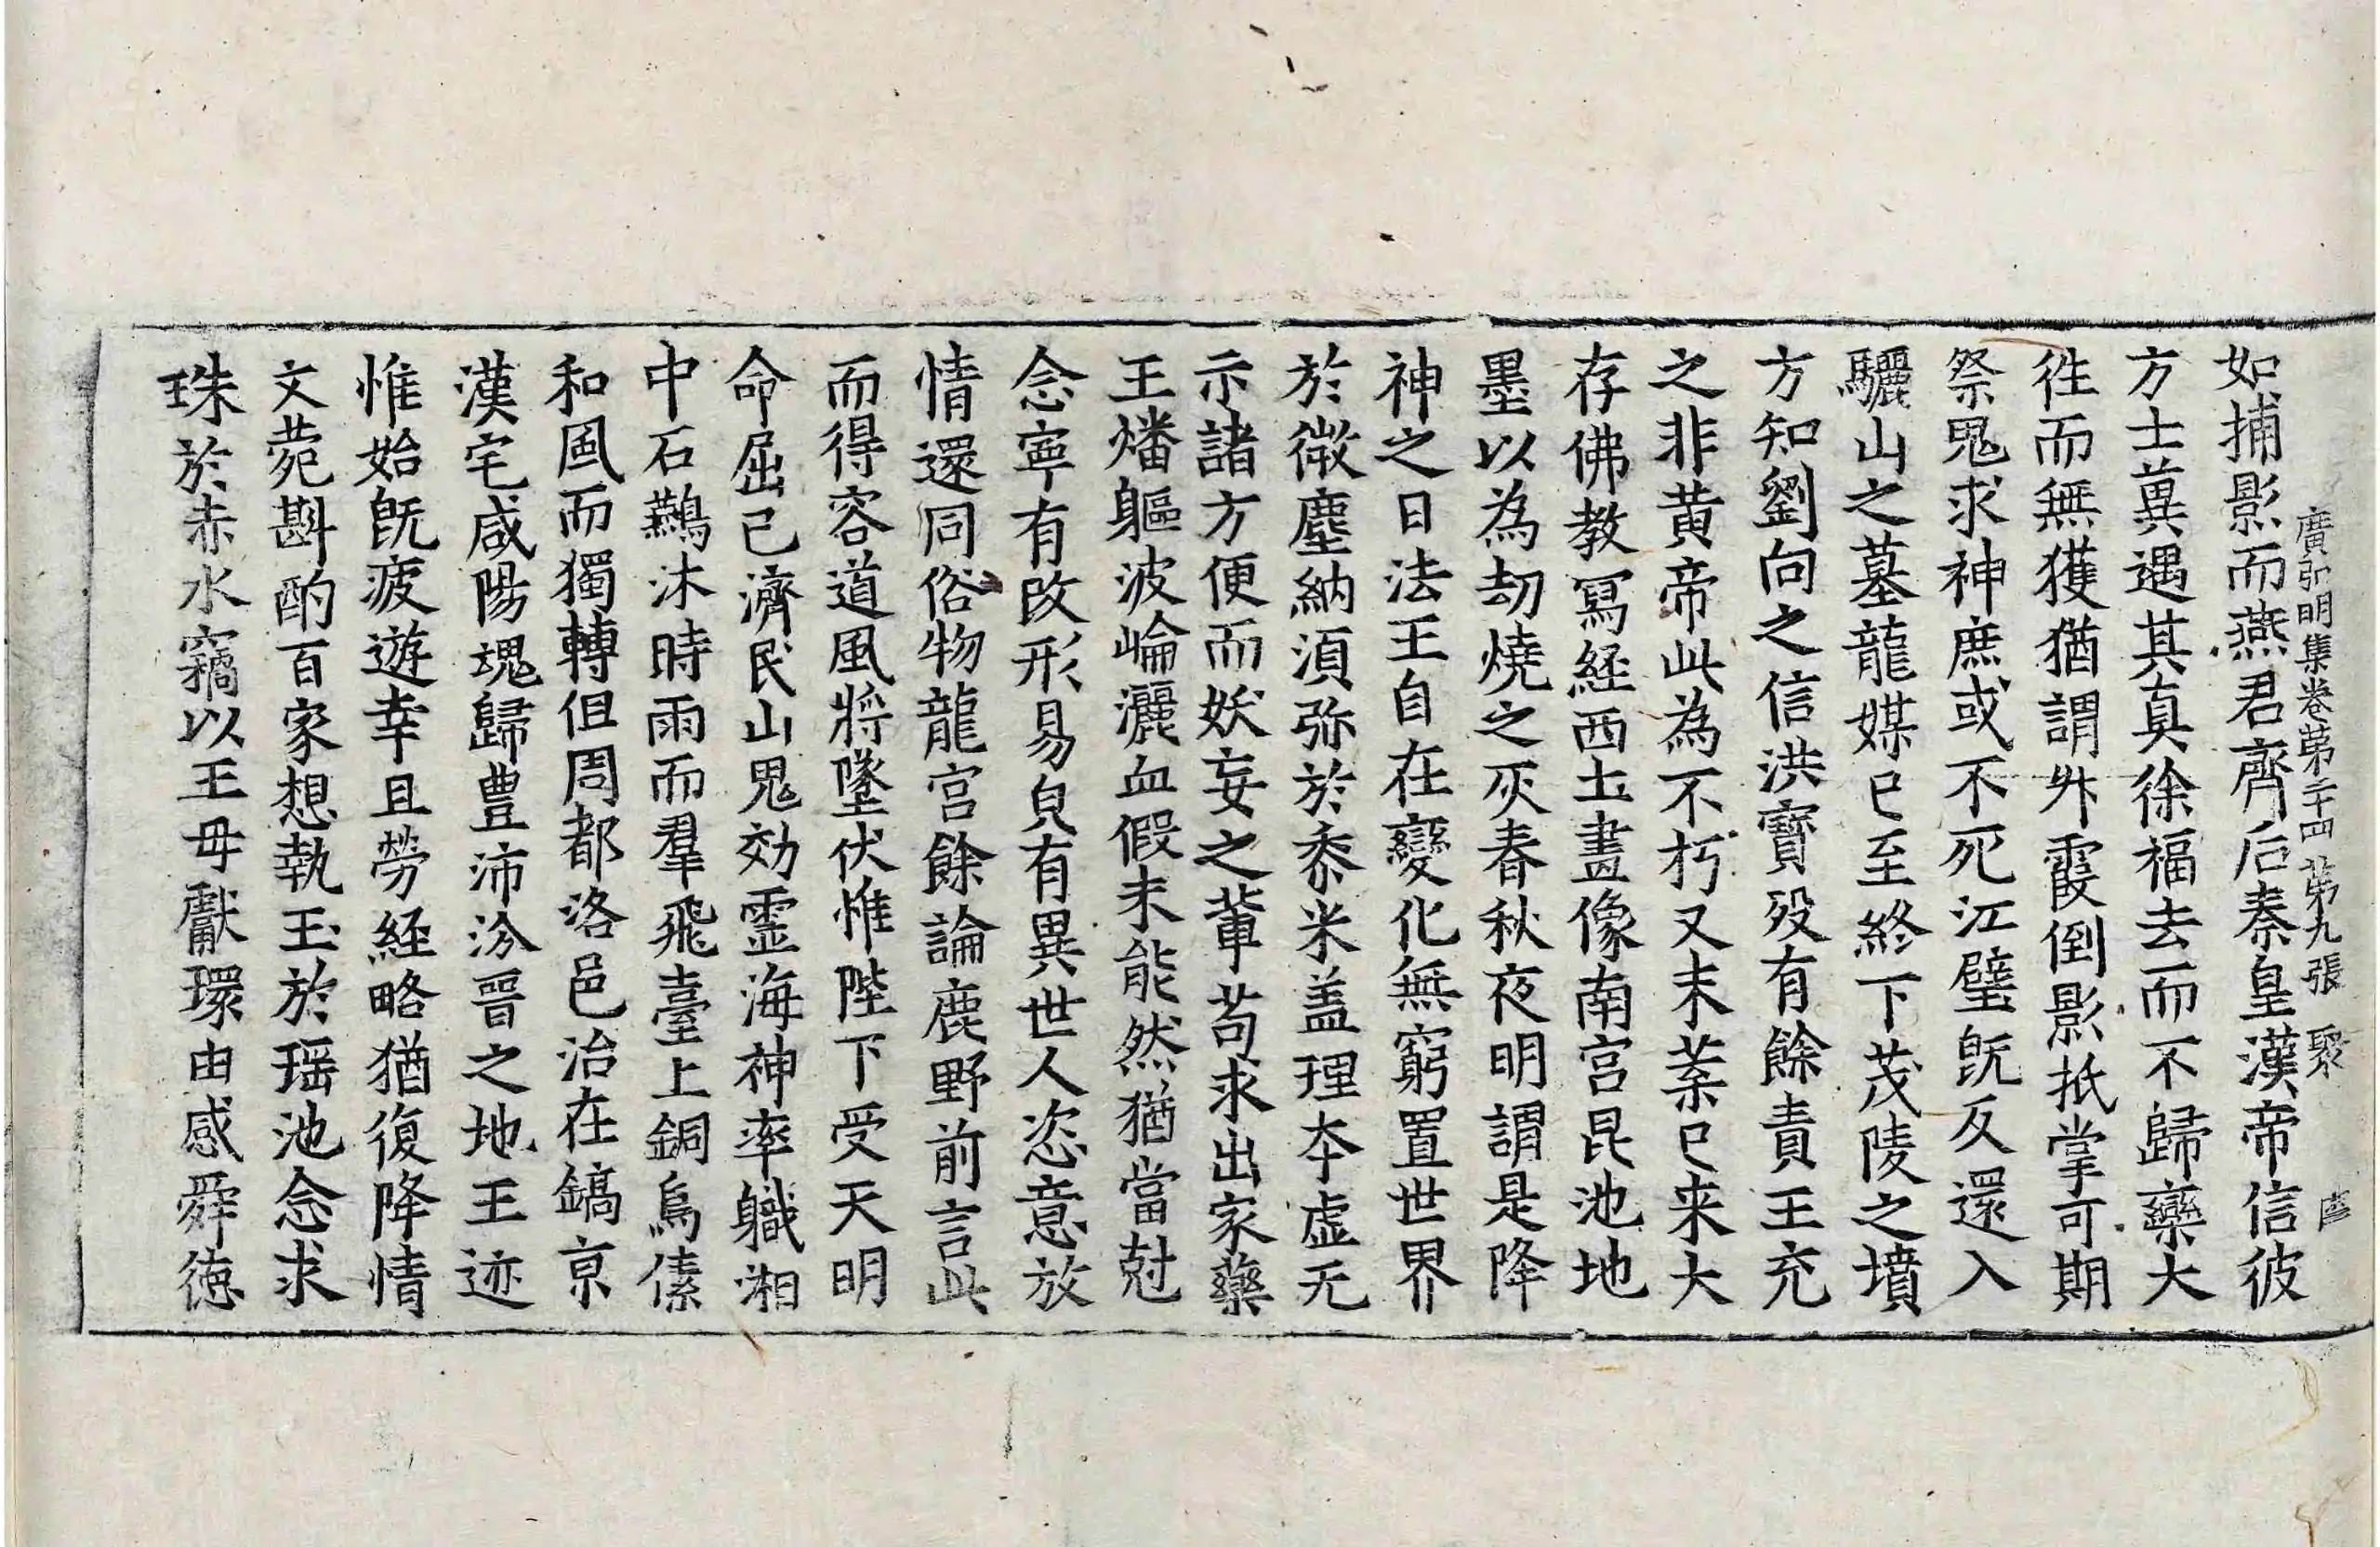 廣弘明集卷第二十四 第九張 聚 彦
如捕影而燕君齊后秦皇漢帝信彼
方士兾遇其真徐福去而不歸欒大
徃而無獲猶謂升霞倒影抵掌可期
祭鬼求神庶或不死江璧旣反還入
驪山之墓龍媒已至終下茂陵之墳
方知劉向之信洪寶殁有餘責王充
之非黄帝此為不朽又末葉已来大
存佛教冩経西土畫像南宫昆池地
墨以為劫燒之灰春秋夜明謂是降
神之日法王自在變化無窮置世界
於微塵納湏弥於黍米盖理夲虚无
示諸方便而妖妄之軰苟求出家藥
王燔軀波崘灑血假未能然猶當尅
念寧有改形易皃有異世人恣意放
情還同俗物龍宫餘論鹿野前言此
而得容道風將墜伏惟陛下受天明
命屈己濟民山鬼効靈海神率軄湘
中石鷰沐時雨而羣飛臺上銅烏傃
和風而獨轉但周都洛邑治在鎬亰
漢宅咸陽魂歸豊沛汾晉之地王迹
惟始旣疲遊幸且勞経略猶復降情
文菀斟酌百家想執玉於瑶池念求
珠於赤水竊以王母獻環由感舜徳